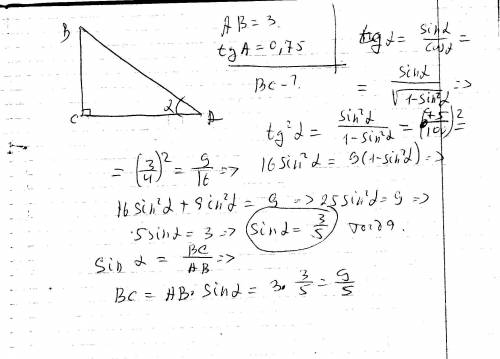 B
C
A
α
AB = 3.
tg A = 0,75
BC - ?
tg α = sin α / cos α =
= sin α / √(1 - sin²α) =>
tg²α = sin²α / (1 - sin²α) = (75/100)² =
= (3/4)² = 9/16 => 16 sin²α = 9(1 - sin²α) =>
16 sin²α + 9 sin²α = 9 => 25 sin²α = 9 =>
5 sin α = 3 => sin α = 3/5 тогда.
sin α = BC/AB =>
BC = AB · sin α = 3 · 3/5 = 9/5